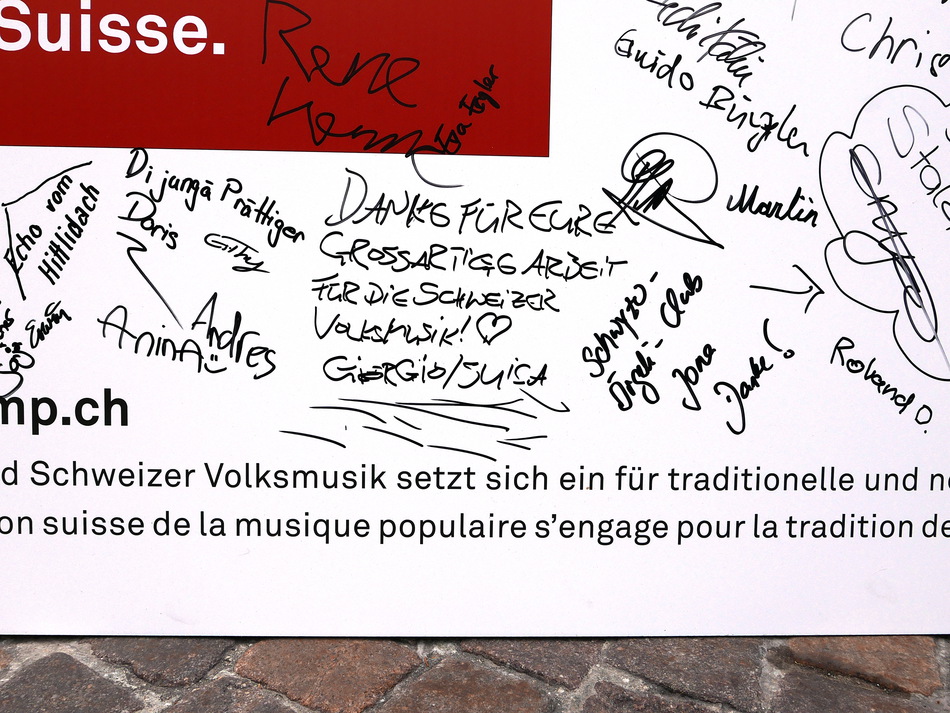 Suisse.
Rene
Guido Büngler
Chris
Echo vom
Hittlidach
Di jungä Prättiger
Doris
Anina
Andres
DANKE FÜR EURE
GROSSARTIGE ARBEIT
FÜR DIE SCHWEIZER
VOLKSMUSIK! ♡
GIORGIO/SUISA
Martin
Schwyzer-
Örgeli-Club
Jona
Danke!
Roland D.
mp.ch
d Schweizer Volksmusik setzt sich ein für traditionelle und n
on suisse de la musique populaire s'engage pour la tradition de